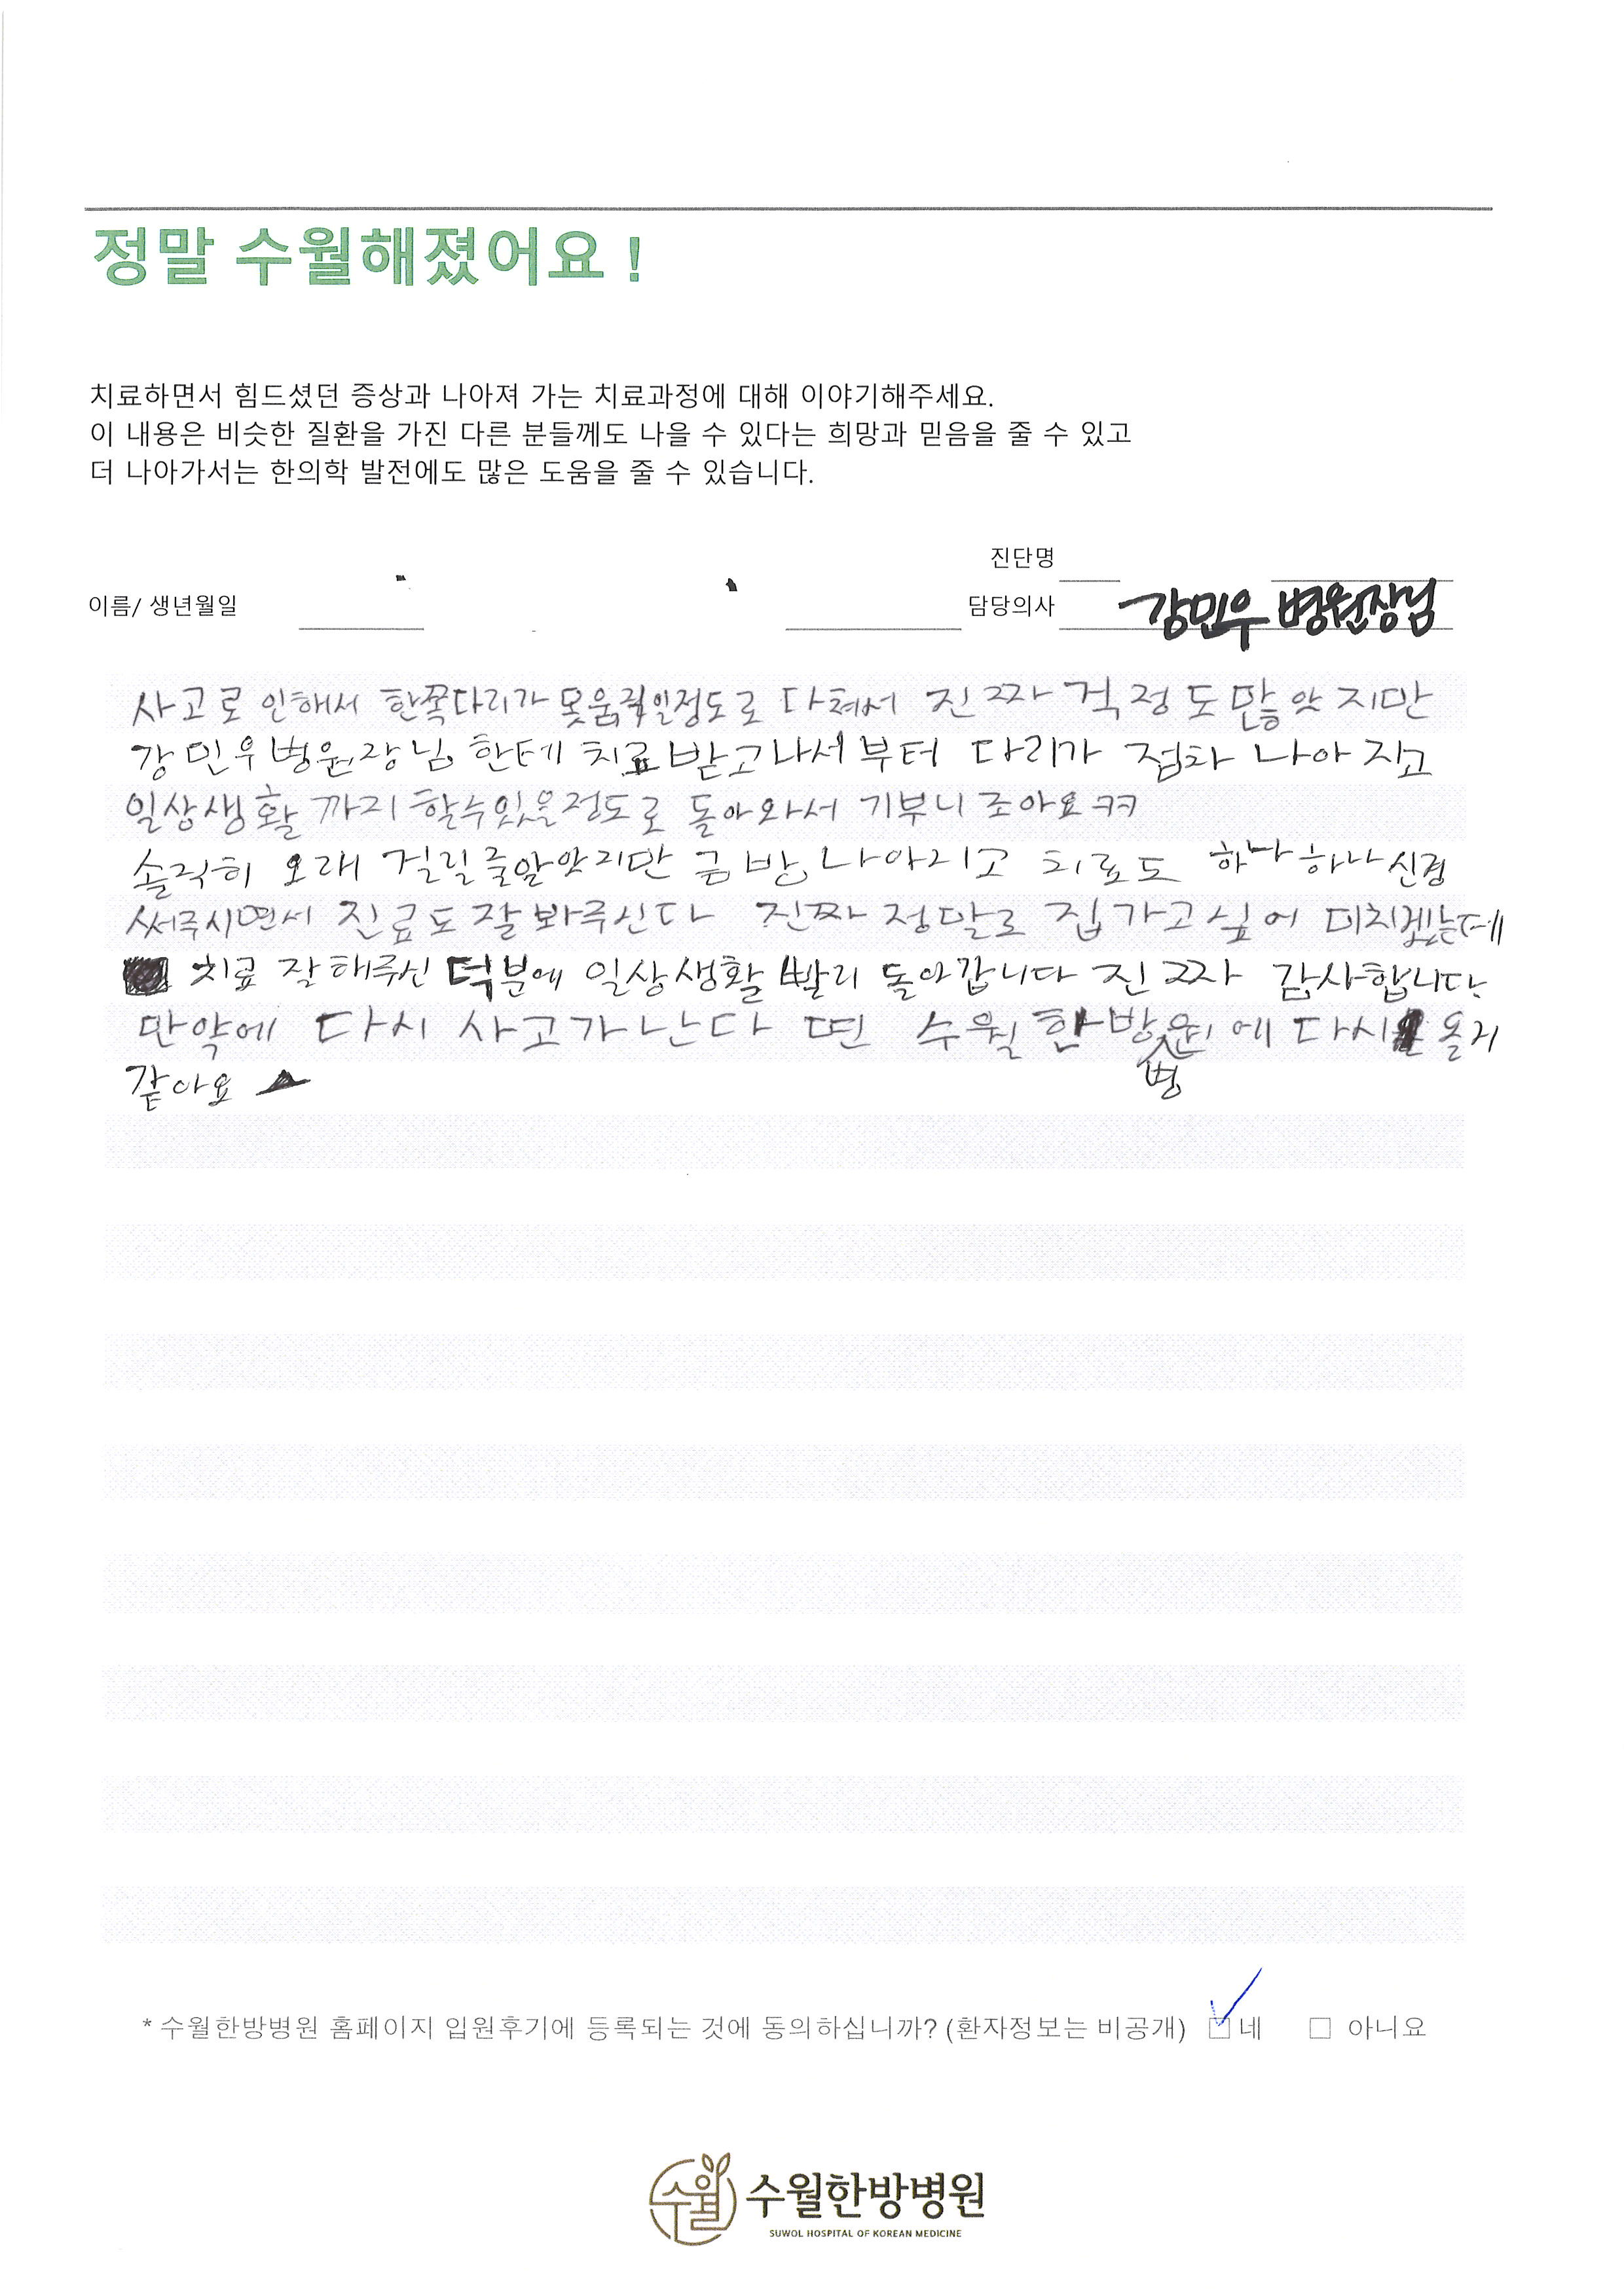 정말 수월해졌어요 !
치료하면서 힘드셨던 증상과 나아져 가는 치료과정에 대해 이야기해주세요.
이 내용은 비슷한 질환을 가진 다른 분들께도 나을 수 있다는 희망과 믿음을 줄 수 있고
더 나아가서는 한의학 발전에도 많은 도움을 줄 수 있습니다.
진단명
이름/ 생년월일 담당의사 강민우 병원장님
사고로 인해서 한쪽다리가 못움직일정도로 다쳐서 진짜 걱정도많앗지만
강민우병원장님 한테 치료받고나서부터 다리가 점차 나아지고
일상생활까지 할수있을정도로 돌아와서 기부니조아요ㅋㅋ
솔직히 오래 걸릴줄알앗지만 금방 나아지고 치료도 하나하나신경
써주시면서 진료도잘봐주신다 진짜 정말로 집가고싶어 미치겠는데
치료 잘해주신 덕분에 일상생활 빨리 돌아갑니다 진짜 감사합니다
만약에 다시 사고가난다면 수월한방병원에 다시 올거
같아요
* 수월한방병원 홈페이지 입원후기에 등록되는 것에 동의하십니까? (환자정보는 비공개) 네 아니요
수월 수월한방병원
SUWOL HOSPITAL OF KOREAN MEDICINE